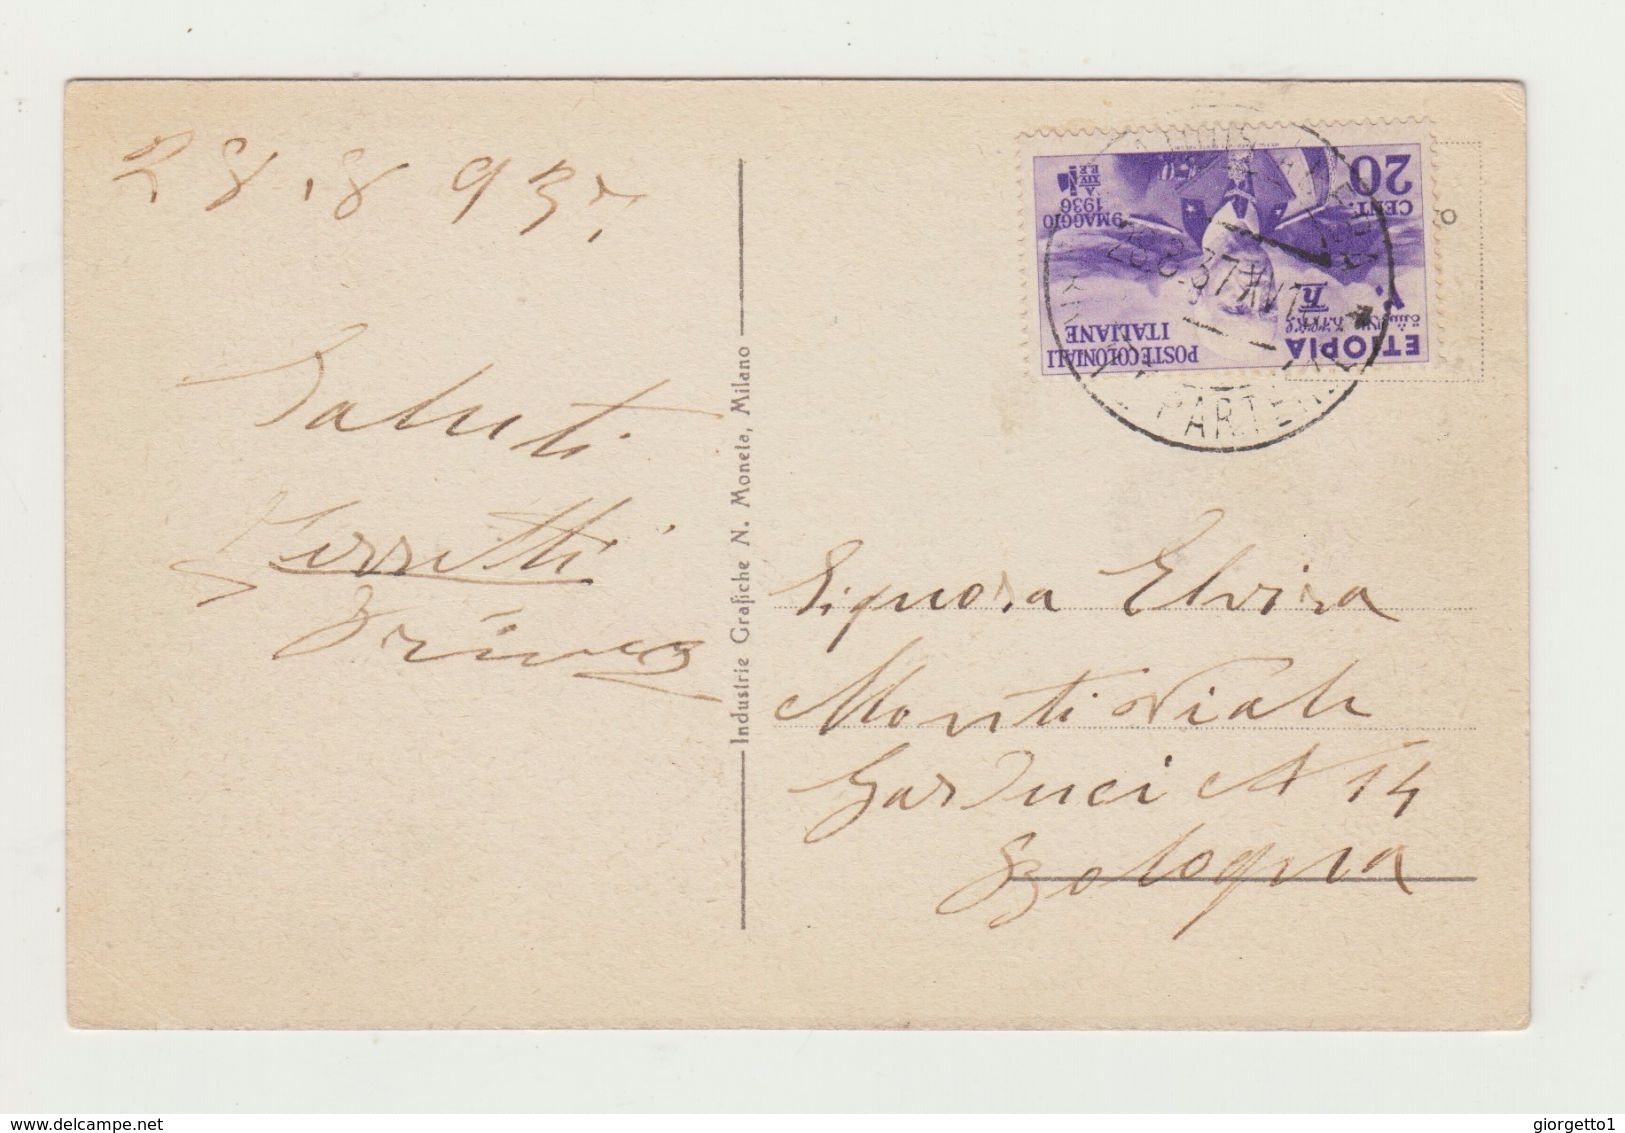 28.8.937.
Saluti
Ferretti
Industrie Grafiche N. Monela, Milano
20
CENT.
9 MAGGIO
1936
A
XIV
E.F.
ETIOPIA
POSTE COLONIALI
ITALIANE
28.8.37 XV
Signora Elvira
Monti Viale
Carducci N 14
Bologna
giorgetto1
www.delcampe.net